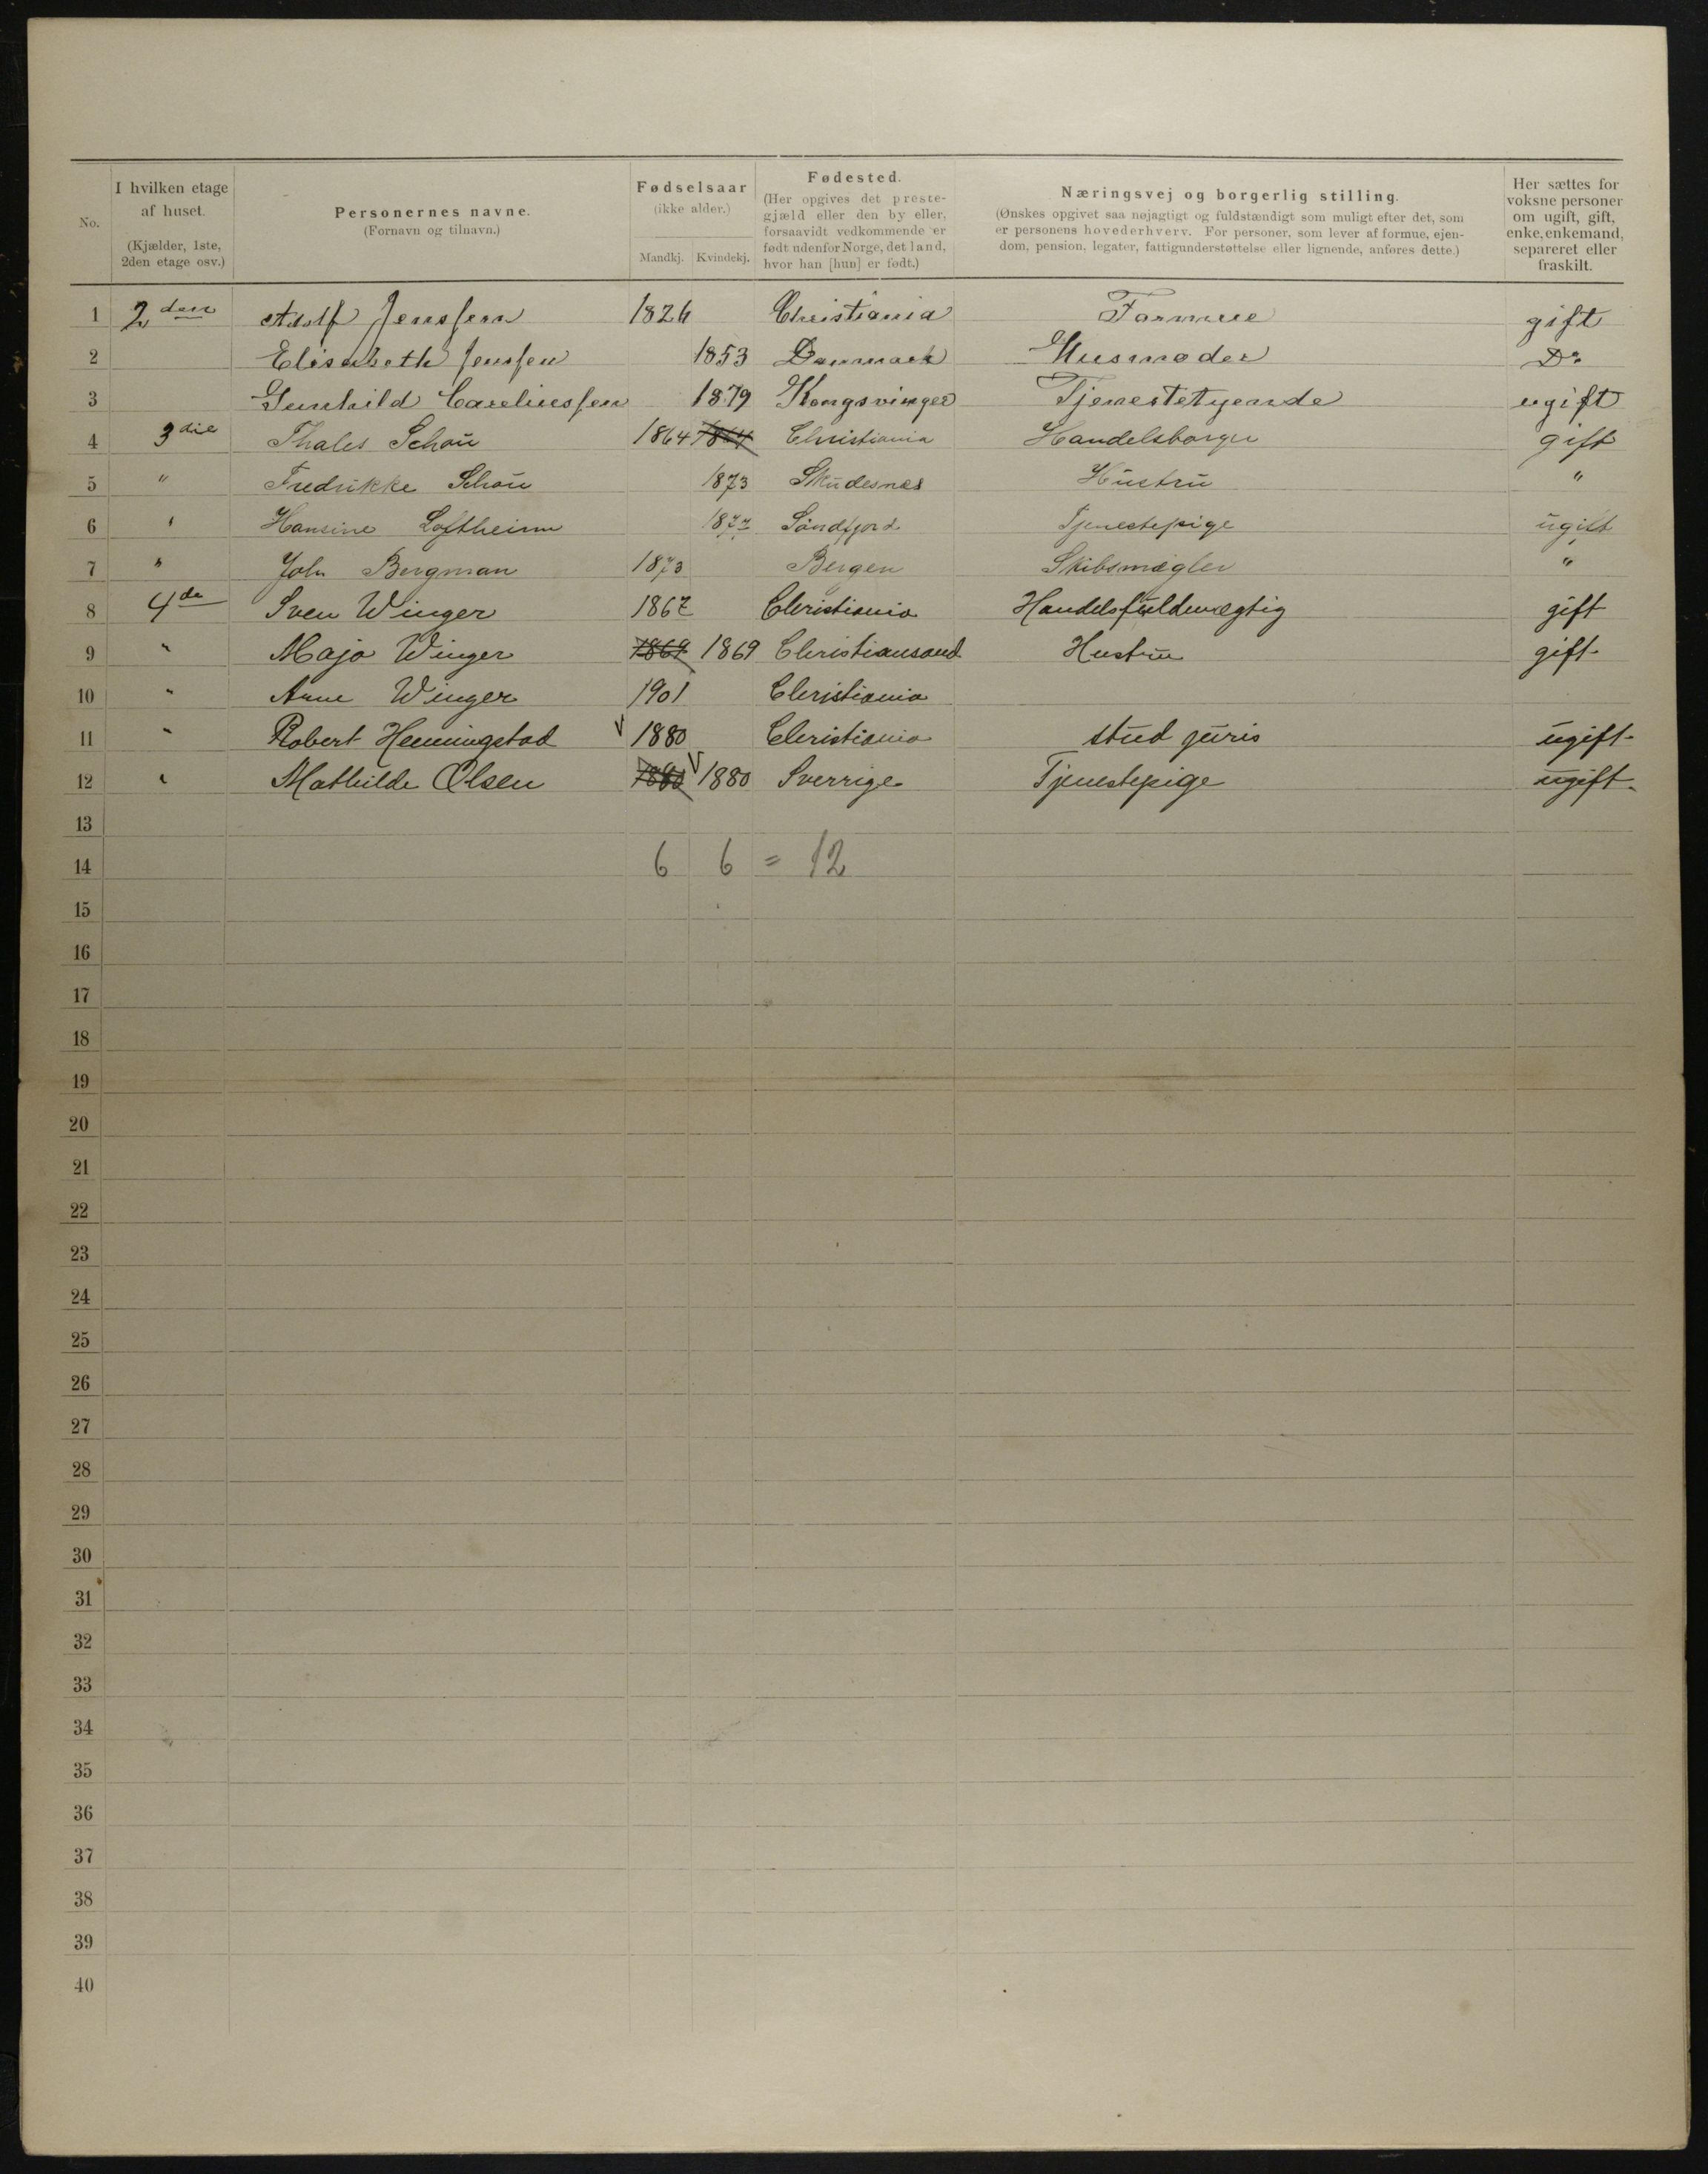 No.
I hvilken etage
af huset.
(Kjælder, 1ste,
2den etage osv.)
Personernes navne.
(Fornavn og tilnavn.)
Fødselsaar
(ikke alder.)
Mandkj. Kvindekj.
Fødested.
(Her opgives det preste-
gjæld eller den by eller,
forsaavidt vedkommende er
født udenfor Norge, det land,
hvor han [hun] er født.)
Næringsvej og borgerlig stilling.
(Ønskes opgivet saa nøjagtigt og fuldstændigt som muligt efter det, som
er personens hovederhverv. For personer, som lever af formue, ejen-
dom, pension, legater, fattigunderstøttelse eller lignende, anføres dette.)
Her sættes for
voksne personer
om ugift, gift,
enke, enkemand,
separeret eller
fraskilt.
1 2den Adolf Jenssen 1826 Christiania Formue gift
2 Elisabeth Jenssen 1853 Danmark Husmoder Do
3 Gunhild Careliussen 1879 Kongsvinger Tjenestetyende ugift
4 3die Thales Schou 1864 1864 Christiania Handelsborger gift
5 " Fredrikke Schou 1873 Skudesnes Hustru "
6 " Hansine Loftheim 1877 Søndfjord Tjenestepige ugift
7 " John Bergman 1873 Bergen Skibsmægler "
8 4de Sven Winger 1867 Christiania Handelsfuldmægtig gift
9 " Maja Winger 1869 1869 Christiansand Hustru gift
10 " Arne Winger 1901 Christiania
11 " Robert Henningstad 1880 Christiania stud juris ugift
12 " Mathilde Olsen 1880 1880 Sverrige Tjenestepige ugift
13
14 6 6 = 12
15
16
17
18
19
20
21
22
23
24
25
26
27
28
29
30
31
32
33
34
35
36
37
38
39
40